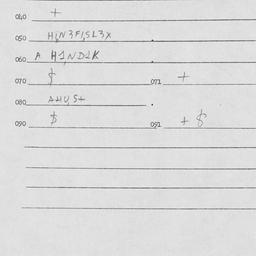 040 +
050 H,N3F1,SL3X
060 A H1ND1K
070 $ 071 +
080 AHU,S+
090 $ 091 + $